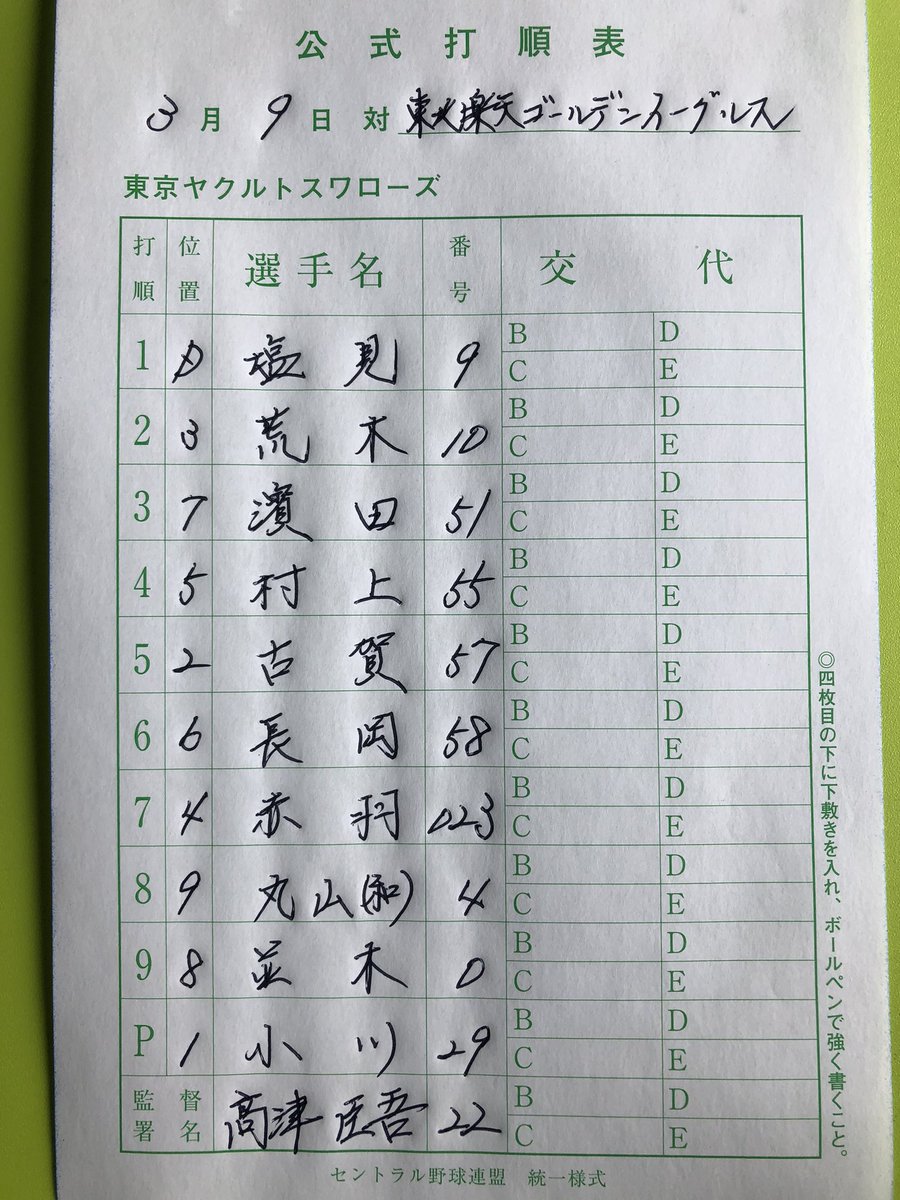 公式打順表
3月9日対 東北楽天ゴールデンイーグルス
東京ヤクルトスワローズ
打順 位置 選手名 番号 交代
1 D 塩見 9 B D
C E
2 3 荒木 10 B D
C E
3 7 濱田 51 B D
C E
4 5 村上 55 B D
C E
5 2 古賀 57 B D
C E
6 6 長岡 58 B D
C E
7 4 赤羽 023 B D
C E
8 9 丸山(和) 4 B D
C E
9 8 並木 0 B D
C E
P 1 小川 29 B D
C E
監督署名 高津臣吾 22 B D
C E
◎四枚目の下に下敷きを入れ、ボールペンで強く書くこと。
セントラル野球連盟 統一様式